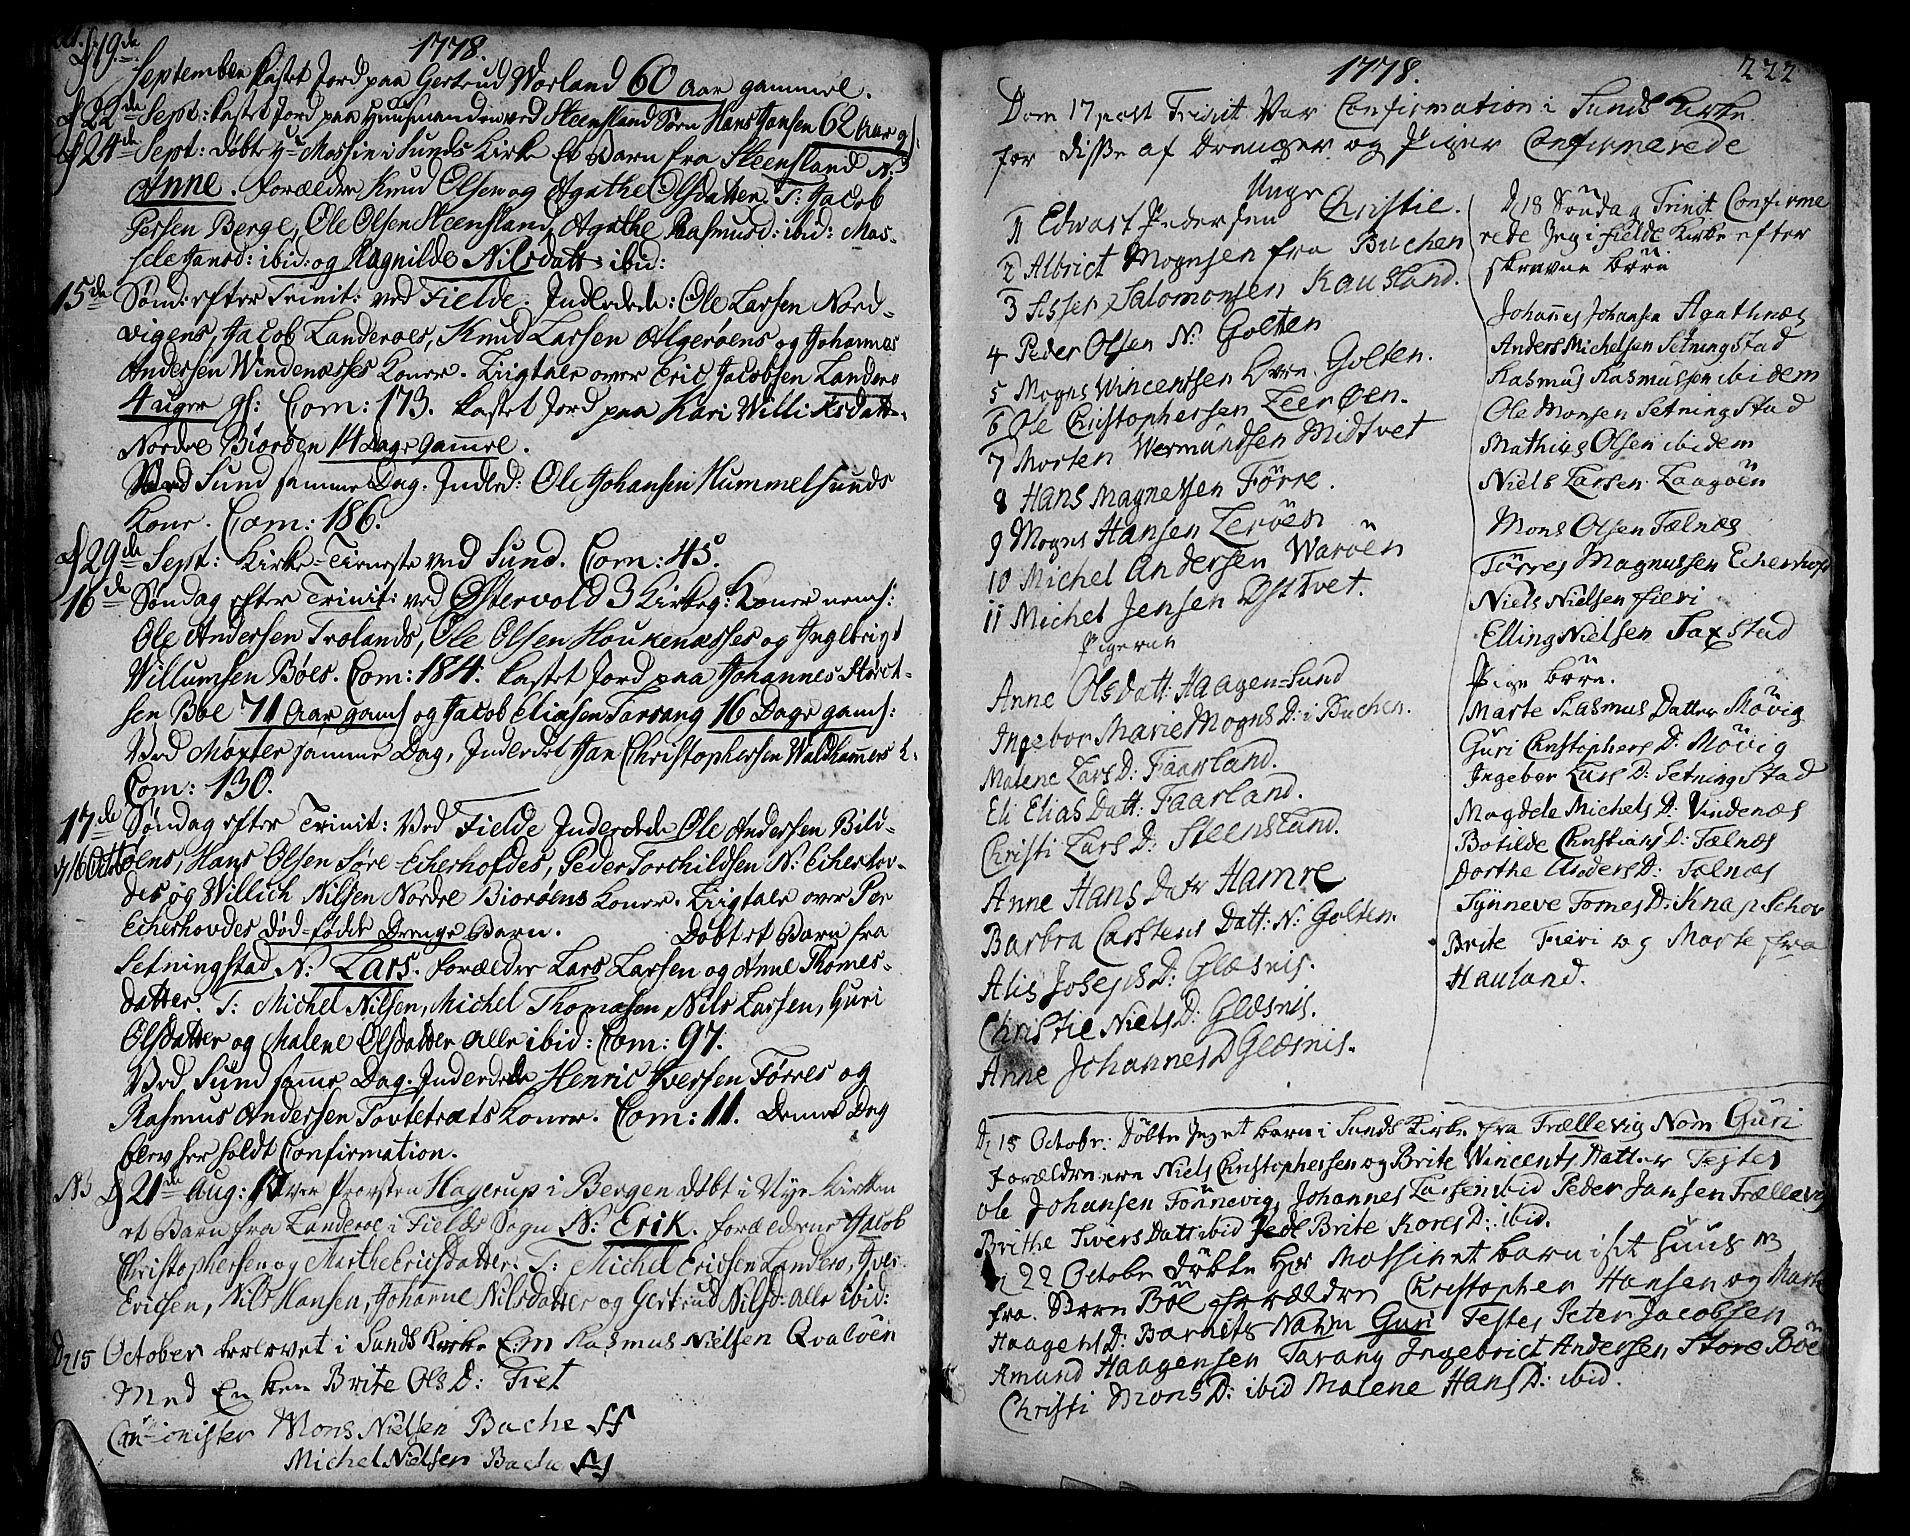 1778.
d 19de September kastet Jord paa Gertrud Worland 60 Aar gammel.
d 22de Sept: kastet Jord paa Huusmanden ved Steensland Sørn Hans Hansen 62 Aar g:
d 24de Sept: døbte Hr Massin i Sunds Kirke Et Barn fra Steensland N:
Anne. Forældre Knud Olsen og Agathe Olsdatter. T: Jacob
Persen Berge, Ole Olsen Steensland, Agathe Rasmusd: ibid: Mas-
sele Hansd: ibid: og Ragnilde Nilsdatt. ibid:
15de Sønd: efter Trinit: ved Fielde. Indledede: Ole Larsen Nord-
vigens, Jacob Landeroes, Knud Larsen Algerøens og Johannes
Andersen Windenæsses Koner. Liigtale over Eric Jacobsen Landerø
4 uger gl: Com: 173. Kastet Jord paa Kari Williksdatt.
Nordre Biorøen 14 Dage gammel.
Ved Sund samme Dag. Indled: Ole Johansen Hummelsunds
Kone. Com: 186.
d 29de Sept: Kirke-Tieneste ved Sund. Com: 45.
16de Søndag efter Trinit: ved Østervold 3 Kirkeg: Koner neml:
Ole Andersen Trolands, Ole Olsen Houkenæsses og Ingebrigt
Willumsen Bøes. Com: 184. Kastet Jord paa Johannes
sen Bøe 71 Aar gaml og Jacob Eliasen Tarrang 16 Dage gaml:
Ved Møxter samme Dag, Indledet Jan Christophersen Waldhammers K.
Com: 130.
17de Søndag efter Trinit: Ved Fielde Indledede Ole Andersen Bild-
øens, Hans Olsen Søre-Echerhofdes, Peder Torchildsen N: Echerhov-
des og Willich Nilsen Nordre Biorøens Koner. Liigtale over Per
Echerhovdes død-fødde Drenge-Barn. Døbt et Barn fra
Setningstad N: Lars. Forældre Lars Larsen og Anne Thomes-
datter. T: Michel Nilsen, Michel Thomasen, Nils Larsen, Guri
Olsdatter og Malene Olsdatter alle ibid: Com: 97.
Ved Sund samme Dag. Indledede Henric Iversen Førres og
Rasmus Andersen Tovtetræts Koner. Com: 11. Denne Dag
blev her holdt Confirmation.
NB d 21de Aug: Blev Provsten Hagerup i Bergen døbt i Nye-Kirken
et Barn fra Landeroe i Fields Sogn N: Erik. Forældrene Jacob
Christophersen og Marthe Ericsdatter. T: Michel Ericsen Landerø, Iver
Ericsen, Nils Hansen, Johanne Nilsdatter og Gertrud Nilsd: alle ibid:
D 15 October trolovet i Sunds Kirke E:m Rasmus Nielsen Qvaløen
Med En ken Brite Ols D: Tvet
Mons Nielsen Bache
Michel Nielsen Bache
1778. 222
Dom 17 post Trinit Var Confirmation i Sunds Kirke
for disse af Drenger og Piger Confirmerede
Unge
1 Edvart Pedersen Christie.
2 Albrict Mognsen fra Buchen
3 Asser Salomonsen Kausland.
4 Peder Olsen N: Golten
5 Mogns Wincentsen Golten.
6 Ole Christophersen Leerøen.
7 Morten Wermundsen Midtvet
8 Hans Magnesen Førre.
9 Mogns Hansen Lerøen
10 Michel Andersen Warøen
11 Michel Jensen Østtvet.
Pigerne
Anne Olsdatt: Haagen-Sund
Ingebor Marie Mogns D: i Buchen.
Malene Lars D: Faarland.
Eli Elias Datt: Faarland.
Christi Lars D: Steensland.
Anne Hans Datr Hamre
Barbra Carstens Datt: N: Golten.
Alis Joseps D: Glæsnis.
Christie Niels D: Glæsnis.
Anne Johannes D Glæsnis.
D 18 Søndag Trinit Confirme
rede Jeg i Fielde Kirke efter
skrevne børn
Johannes Johansen Agathnæs
Anders Michelsen Setningstad
Rasmus Rasmussen ibidem
Ole Monsen Setningstad
Mathies Olsen ibidem
Niels Larsen Laagøen
Mons Olsen Tælnæs
Törres Magnussen Echerhofd
Niels Nielsen Fieri
Elling Nielsen Taxstad
Pige børn.
Marte Rasmus Datter Møvig
Guri Christophers D: Møvig
Ingebor Lars D: Setningstad
Magdele Michels D: Vindenæs
Botilde Christians D: Tælnæs
Dorthe Anders D: Tælnæs
Synneve Tomes D: Knapschov
Brite Fieri og Marte fra
Hauland.
D 15 Octobr: Döbte Jeg et barn i Sunds Kirke fra Trællevig Nom Guri
Forældrene ere Niels Christophersen og Brite Vincents Datter Testes
Ole Johansen Tönnevig, Johannes Larsen ibid Peder Jansen Trællevig
Brithe Iwers Datt ibid Brite Kores D: ibid.
D 22 Octobr Döbte Hr Mossin et barn i sit huus NB
fra Store Böe forældre Christopher Hansen og Marte
Haagens D: Barnets Nafn Guri Testes Peter Jacobsen
Amund Haagensen Tarang Ingebrict Andersen Store Böe
Christi Mons D: ibid Malene Hans D: ibid.